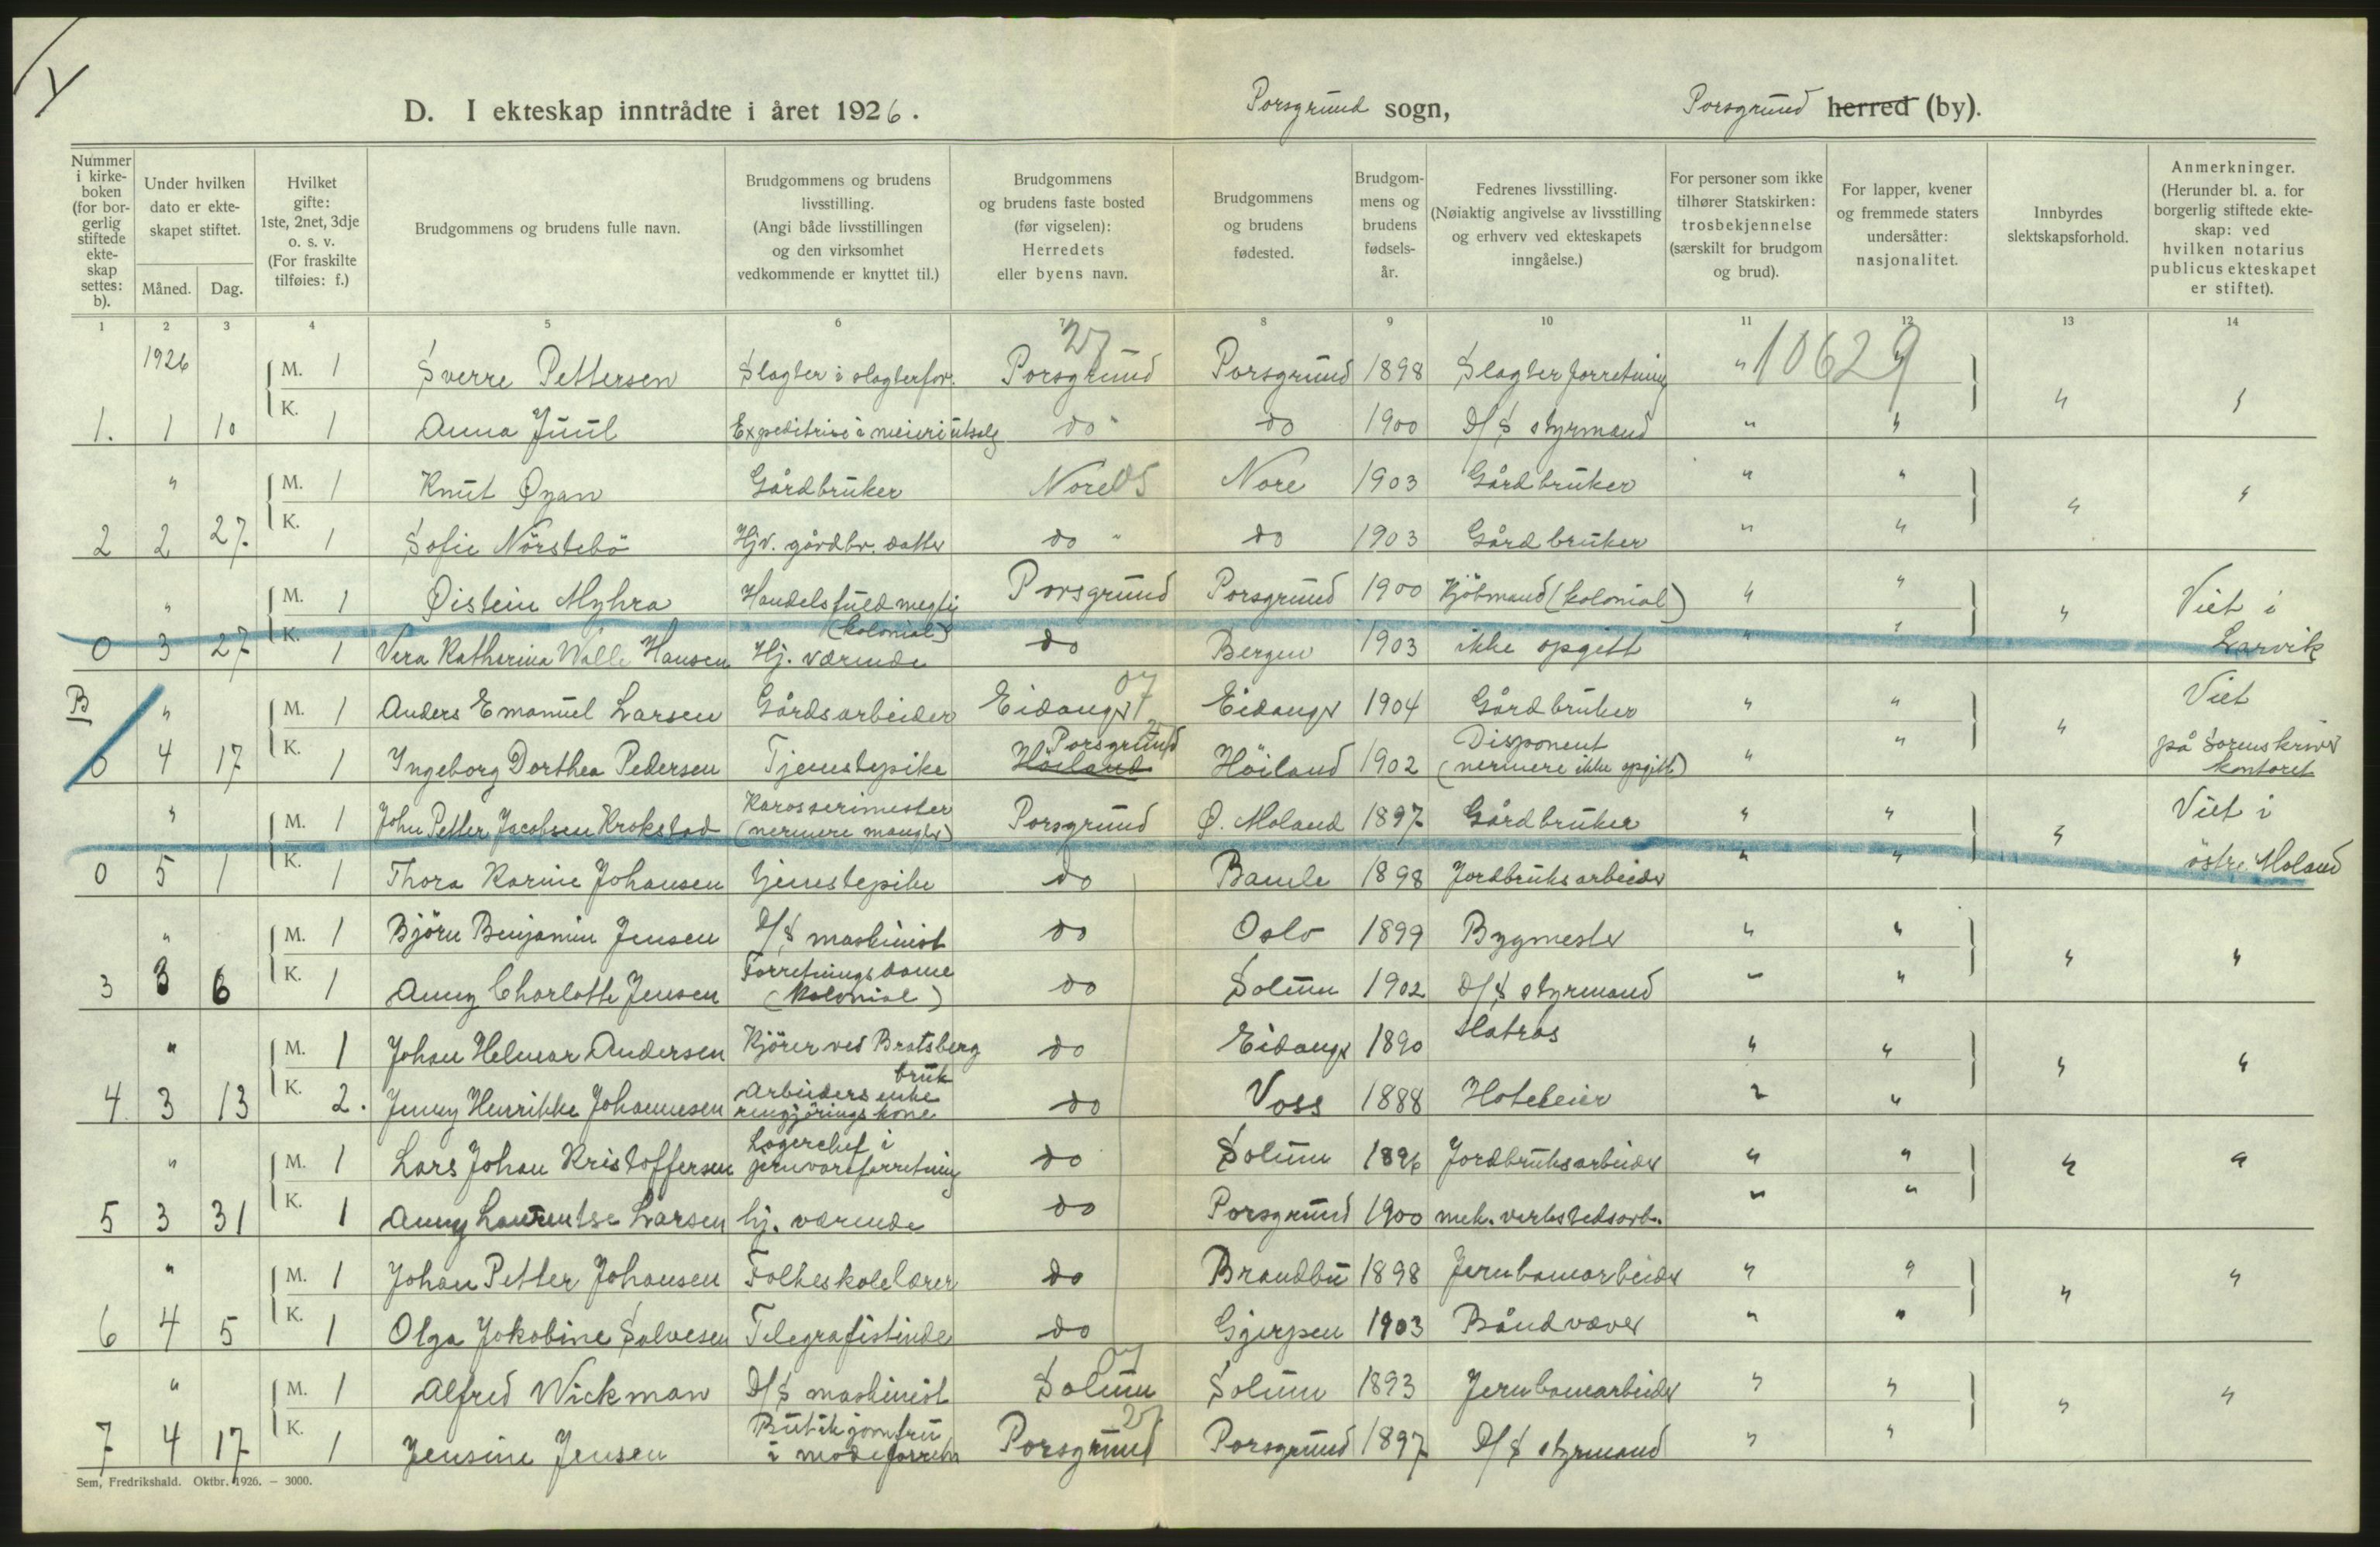 D. I ekteskap inntrådte i året 1926. Porsgrund sogn, Porsgrund herred (by).
Nummer i kirkeboken (for borgerlig stiftede ekteskap settes: b).
Under hvilken dato er ekteskapet stiftet.
Måned. Dag.
Hvilket gifte: 1ste, 2net, 3dje o. s. v. (For fraskilte tilføies: f.)
Brudgommens og brudens fulle navn.
Brudgommens og brudens livsstilling. (Angi både livsstillingen og den virksomhet vedkommende er knyttet til.)
Brudgommens og brudens faste bosted (før vigselen): Herredets eller byens navn.
Brudgommens og brudens fødested.
Brudgommens og brudens fødselsår.
Fedrenes livsstilling. (Nøiaktig angivelse av livsstilling og erhverv ved ekteskapets inngåelse.)
For personer som ikke tilhører Statskirken: trosbekjennelse (særskilt for brudgom og brud).
For lapper, kvener og fremmede staters undersåtter: nasjonalitet.
Innbyrdes slektskapsforhold.
Anmerkninger. (Herunder bl. a. for borgerlig stiftede ekteskap: ved hvilken notarius publicus ekteskapet er stiftet).
1 2 3 4 5 6 7 8 9 10 11 12 13 14
27 10629
1926 M. 1 Sverre Pettersen Slagter i slagterfor. Porsgrund Porsgrund 1898 Slagterforretning " "
1. 1 10 K. 1 Anna Juul Expeditrise i meieriutsalg do do 1900 D/S styrmand " " " "
" M. 1 Knut Øyan Gårdbruker Nore 05 Nore 1903 Gårdbruker " "
2 2 27. K. 1 Sofie Nörstebö Hjv. gårdbr. datter do " do 1903 Gårdbruker " " " "
" M. 1 Øistein Myhra Handelsfuldmegtig (kolonial) Porsgrund Porsgrund 1900 Kjöbmand (kolonial) " " " Viet i
0 3 27 K. 1 Vera Katharina Walle Hansen Hj. værende do Bergen 1903 ikke opgitt " " Larvik
B " M. 1 Anders Emanuel Larsen Gårdsarbeider Eidanger 07 Eidanger 1904 Gårdbruker " " " Viet
0 4 17 K. 1 Ingeborg Dorthea Pedersen Tjenestepike Höiland Porsgrund Höiland 1902 Disponent (nermere ikke opgitt) " " på Sorenskriver kontoret
" M. 1 John Petter Jacobsen Krokstad Karosserimester (nermere mangler) Porsgrund Ø. Moland 1897 Gårdbruker " " " Viet i
0 5 1 K. 1 Thora Karine Johansen tjenestepike do Bamle 1898 Jordbruksarbeider " " östre Moland
" M. 1 Björn Benjamin Jensen D/S maskinist do Oslo 1899 Bygmester " "
3 3 6 K. 1 Anny Charlotte Jensen Forretningsdame (kolonial) do Solum 1902 D/S styrmand " " " "
" M. 1 Johan Helmar Andersen Kjörer ved Bratsberg bruk do Eidanger 1890 Matros " "
4 3 13 K. 2. Jenny Henrikke Johannesen Arbeiders enke rengjöringskone do Voss 1888 Hoteleier " " " "
" M. 1 Lars Johan Kristoffersen Lagerchef i jernvareforretning do Solum 1896 Jordbruksarbeider " "
5 3 31 K. 1 Anny Laurentse Larsen hj. værende do Porsgrund 1900 mek. verkstedsarb. " " " "
" M. 1 Johan Petter Johansen Folkeskolelærer do Brandbu 1898 Jernbanearbeider " "
6 4 5 K. 1 Olga Jakobine Salvesen Telegrafistinde do Gjerpen 1903 Båndvæver " " " "
" M. 1 Alfred Wickman D/S maskinist Solum 07 Solum 1893 Jernbanearbeider " "
7 4 17 K. 1 Jensine Jensen Butikjomfru i modeforretn Porsgrund 27 Porsgrund 1897 D/S styrmand " " " "
Sem, Fredrikshald. Oktbr. 1926. — 3000.